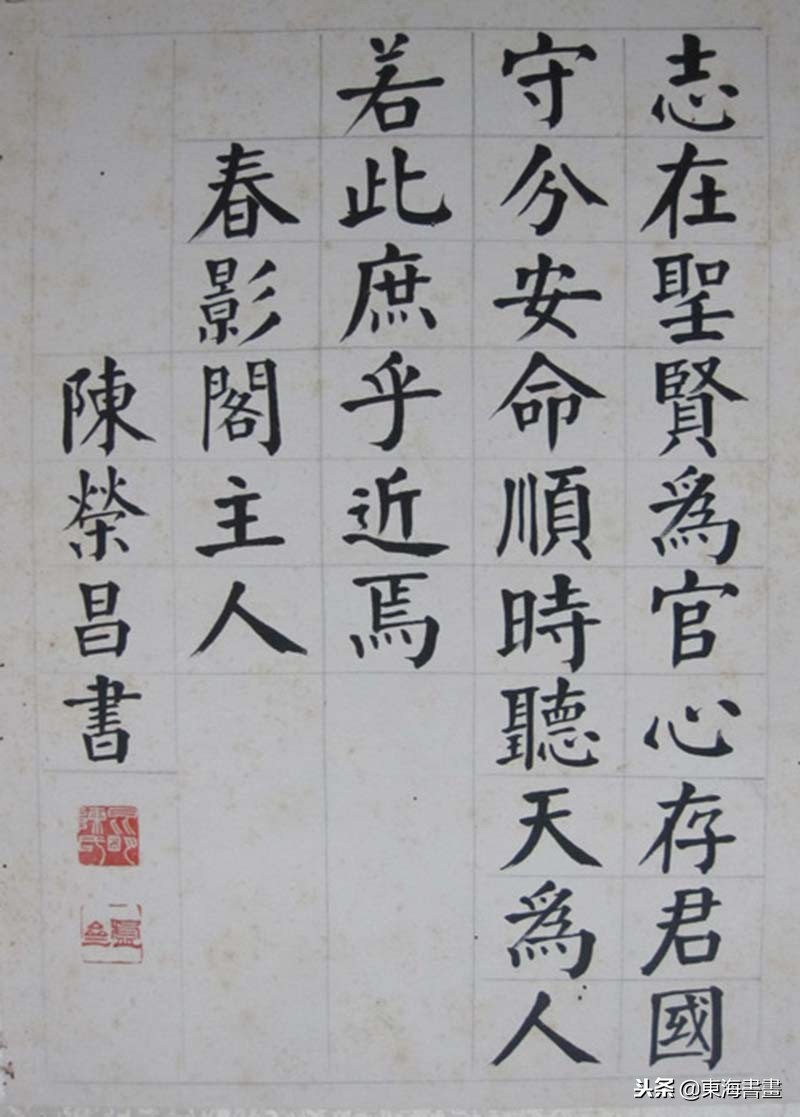 志在聖賢爲官心存君國
守分安命順時聽天爲人
若此庶乎近焉
春影閣主人
陳榮昌書
头条 @東海書畫